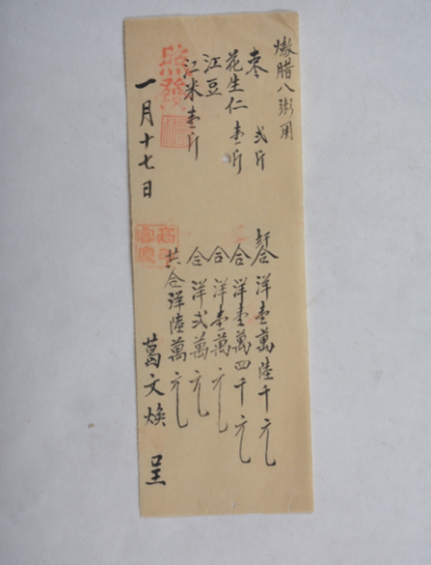 熬腊八粥用
枣 弍斤 計合洋壹萬陸千元
花生仁 壹斤 合洋壹萬四千元
江豆 合洋壹萬元
江米壹斤 合洋弍萬元
照發
共合洋陸萬元
一月十七日 葛文焕 呈